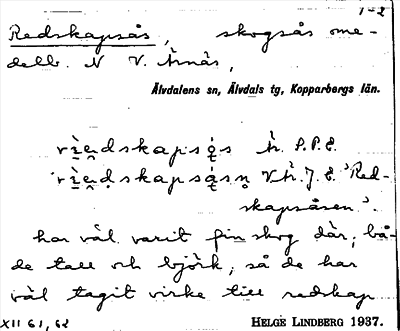 1-2
Redskapsås, skogsås ome-
delb. N V. Årnäs,
Älvdalens sn, Älvdals tg, Kopparbergs län.
rìe̯dskaps Åi. P.P.E.
V.Åi. J. E. 'Red-
skapsåsen'.
har väl varit fin skog där, bå-
de tall och björk, så de har
väl tagit virke till redskap
XII 61, 62 HELGE LINDBERG 1937.